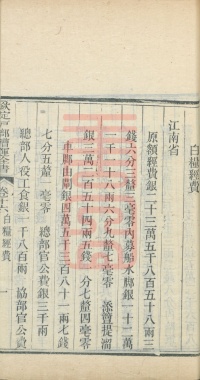 白糧經費
江南省
原額經費銀二十二萬五千八百五十八兩三
錢六分三釐三毫零內募船水腳銀一十二萬
一千一十八兩六分九釐七毫零 漕贈提溜
銀三萬二百五十四兩五錢 分七釐四毫零
車腳由閘銀四萬五千三百八十一兩七錢
七分五釐 毫零 總部官公費銀三千兩
總部人役工食銀 千八百兩 協部官公費
欽定戶部漕運全書 卷十六 白糧經費 一